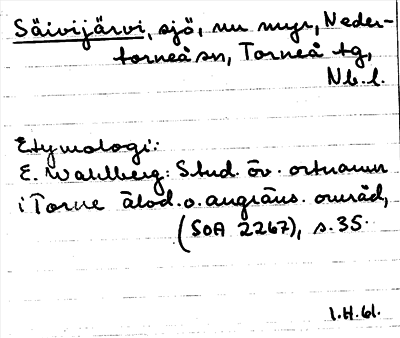 Säivijärvi, sjö, nu myr, Neder-
torneå sn, Torneå tg,
Nb. l.
Etymologi:
E. Wahlberg: Stud. öv. ortnamn
i Torne älvd. o. angräns. område,
(SOA 2267), s. 35.
1.H.61.